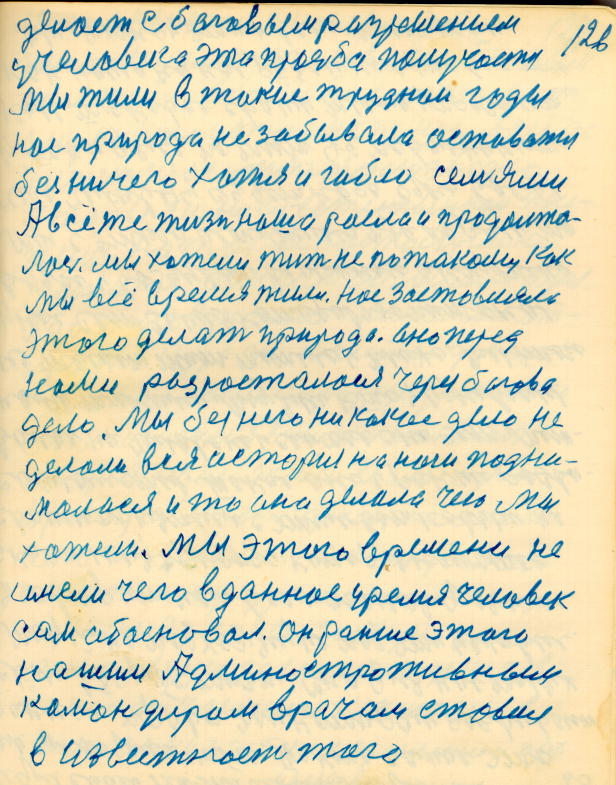 делоет с боговым разрешением
126
у человека эта прозба получаэтя
Мы жили в токие трудном годы
нас природа не забывала оставатя
без ничего хотя и гибло семями
А всёже жизн наша расла и продолжа-
лас. мы хотели жит не потакому как
мы всё время жили. нас застовляла
этого делат природа. она перед
нами разросталася через богова
дело. Мы без него никокое дело не
делали вся история на ноги подни-
малася и то она делала чего мы
хотели. Мы этого времени не
имели чего в данное уремя человек
сам обосновал. он ранше этого
нашим Админостротивным
командиром врачам ставил
в известност того